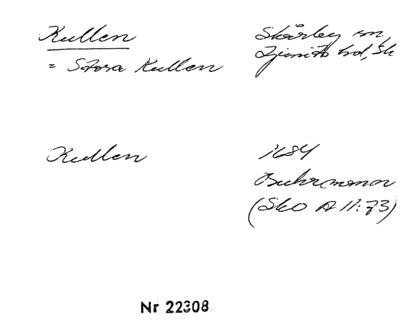 Kullen
= Stora Kullen
Skårby sn,
Ljunits hd, Sk
Kullen
1684
Buhrmannor
(Sko A 11:73)
Nr 22308